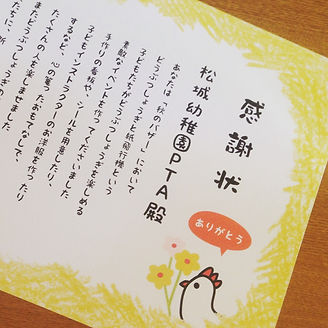 感謝状
松城幼稚園PTA殿
あなたは「秋のバザー」において
子どもたちがどうぶつしょうぎと紙飛行機という
素敵なイベントを作ってくださいました
手作りの看板や、シールを用意したり、
子どもインストラクターのお洋服を作ったり
するなど、心の篭ったおもてなしで、
たくさんの人を楽しませました
またどうぶつしょうぎの
たちに、新
ありがとう